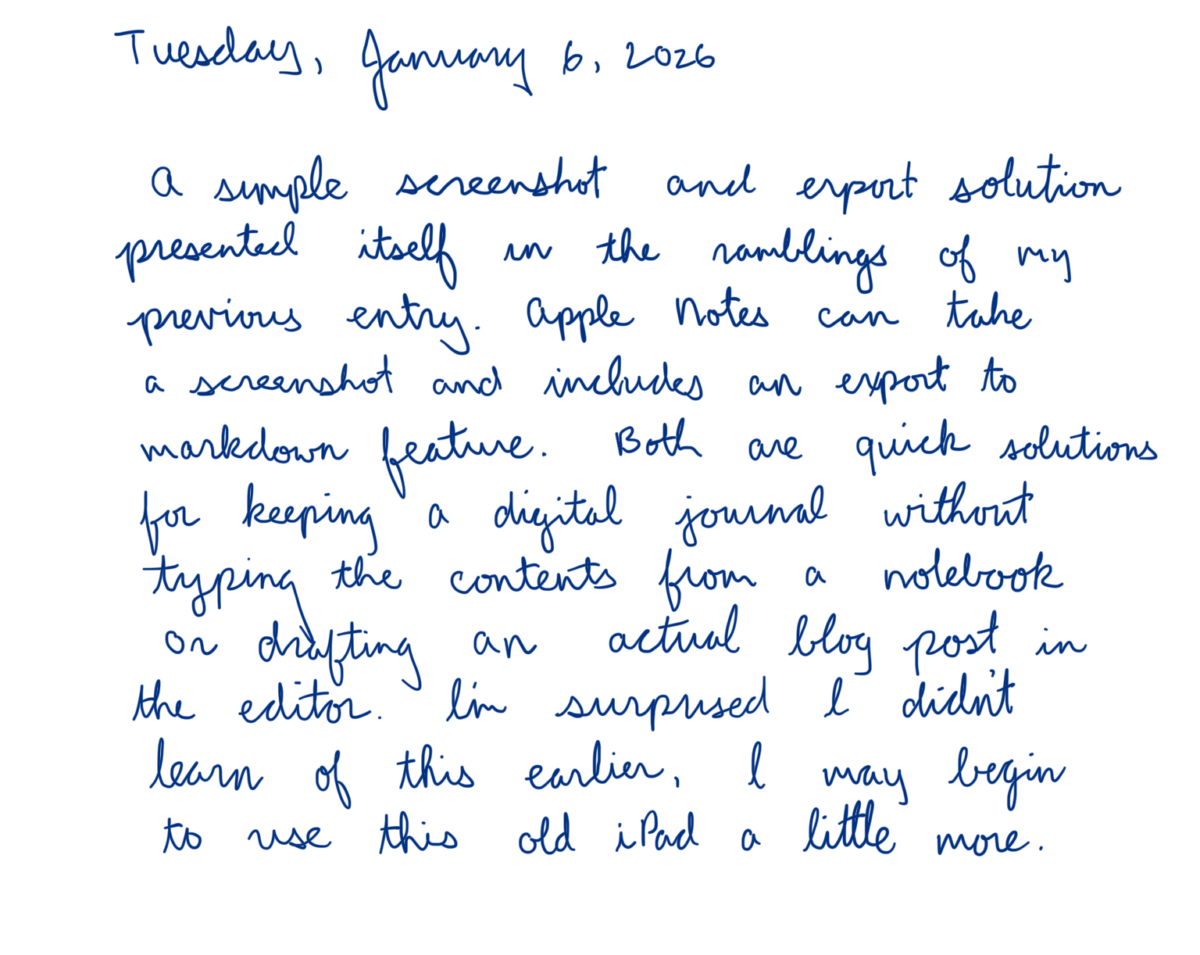 Tuesday, January 6, 2026
A simple screenshot and export solution
presented itself in the ramblings of my
previous entry. Apple Notes can take
a screenshot and includes an export to
markdown feature. Both are quick solutions
for keeping a digital journal without
typing the contents from a notebook
or drafting an actual blog post in
the editor. I'm surprised I didn't
learn of this earlier, I may begin
to use this old iPad a little more.